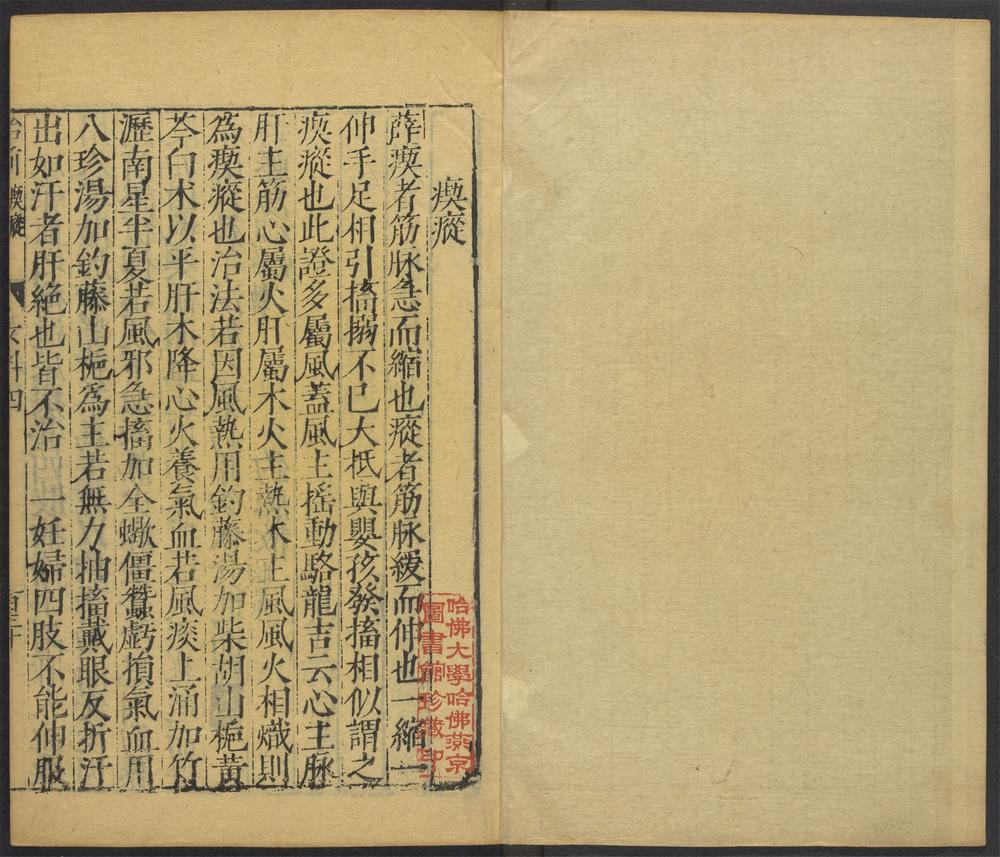 瘈瘲
薛瘈者筋脉急而縮也瘲者筋脉緩而伸也一縮一
伸手足相引搐搦不已大抵與嬰孩發搐相似謂之
瘈瘲也此證多屬風蓋風主搖動駱龍吉云心主脉
肝主筋心屬火肝屬木火主熱木主風風火相熾則
為瘈瘲也治法若因風熱用釣藤湯加柴胡山梔黃
芩白术以平肝木降心火養氣血若風痰上涌加竹
瀝南星半夏若風邪急搐加全蠍僵蠶虧損氣血用
八珍湯加釣藤山梔為主若無力抽搐戴眼反折汗
出如汗者肝絶也皆不治 一妊婦四肢不能伸服
瘈瘲 女科四
哈佛大學哈佛燕京
圖書館珍藏印